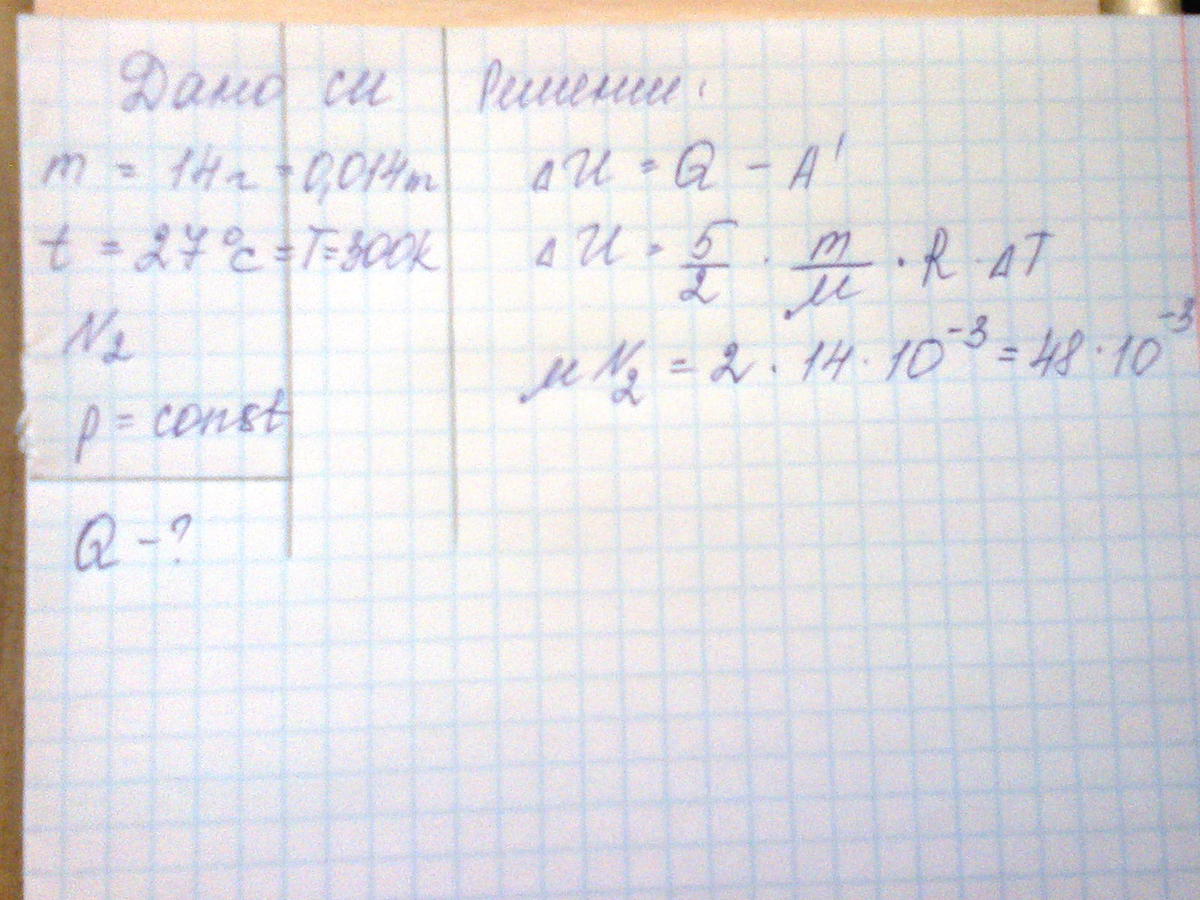 Дано СИ Решение:
m = 14г = 0,014т
t = 27°c = T = 300k
N₂
p = const
Q - ?
ΔU = Q - A'
ΔU = 5/2 · m/μ · R · ΔT
μ N₂ = 2 · 14 · 10⁻³ = 48 · 10⁻³